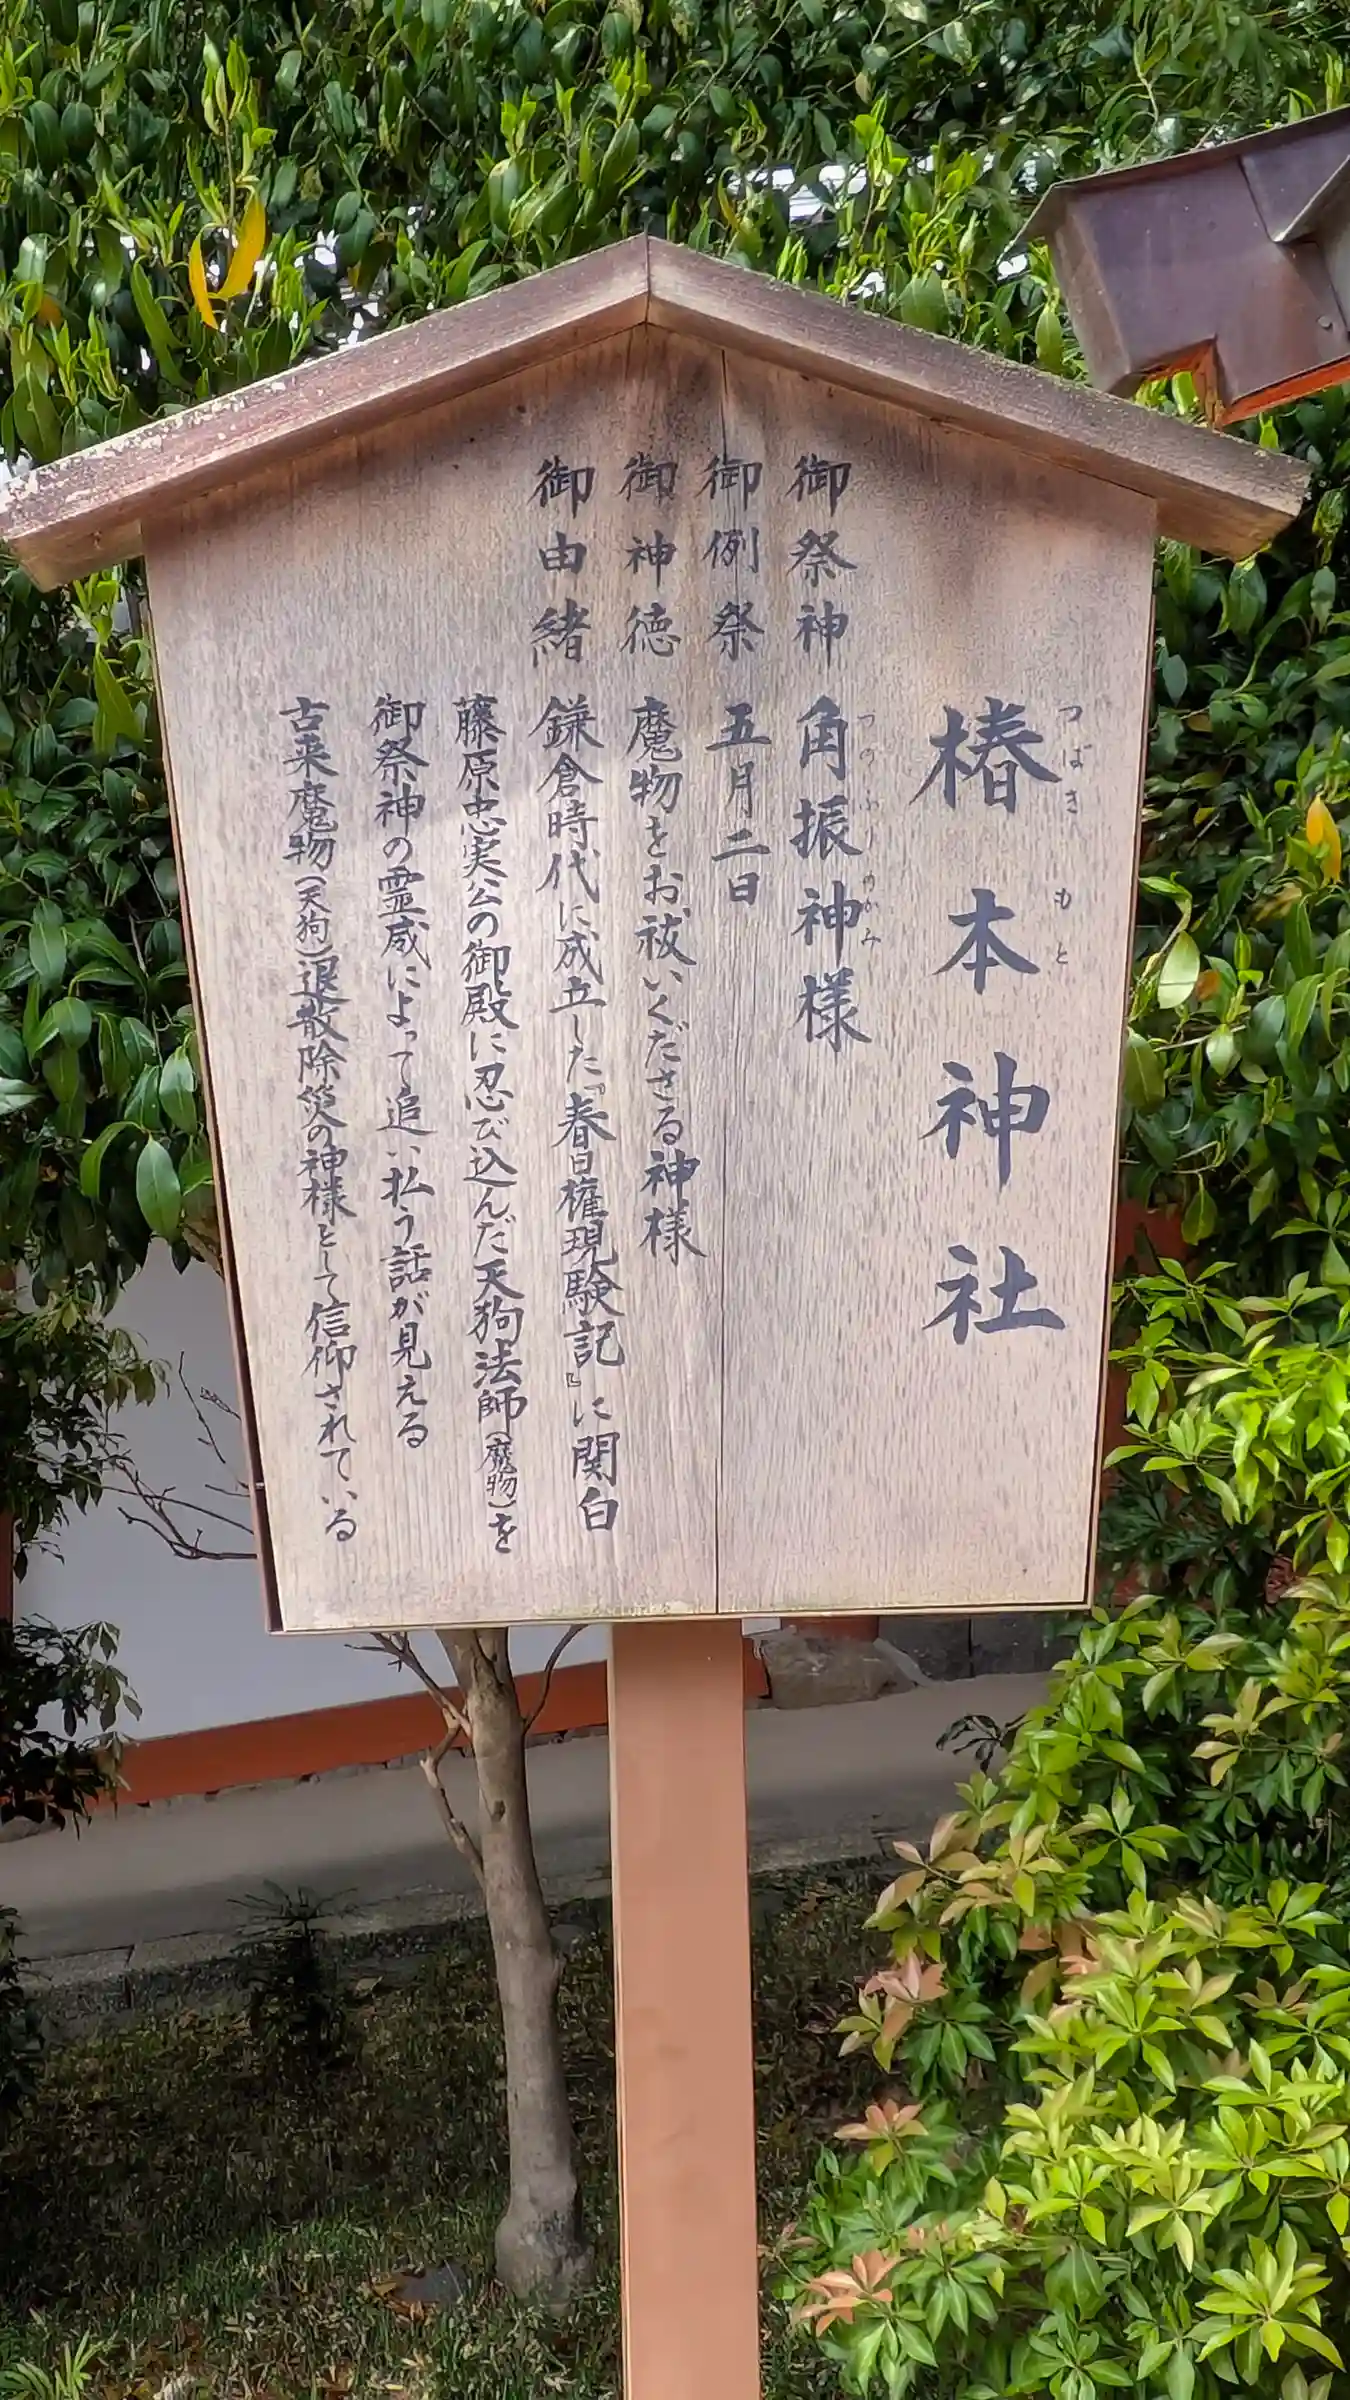 椿本神社
つばきもと
御祭神 角振神様
つのふりのかみ
御例祭 五月二日
御神徳 魔物をお祓いくださる神様
御由緒 鎌倉時代に成立した『春日権現験記』に関白
藤原忠実公の御殿に忍び込んだ天狗法師（魔物）を
御祭神の霊威によって追い払う話が見える
古来魔物（天狗）退散除災の神様として信仰されている